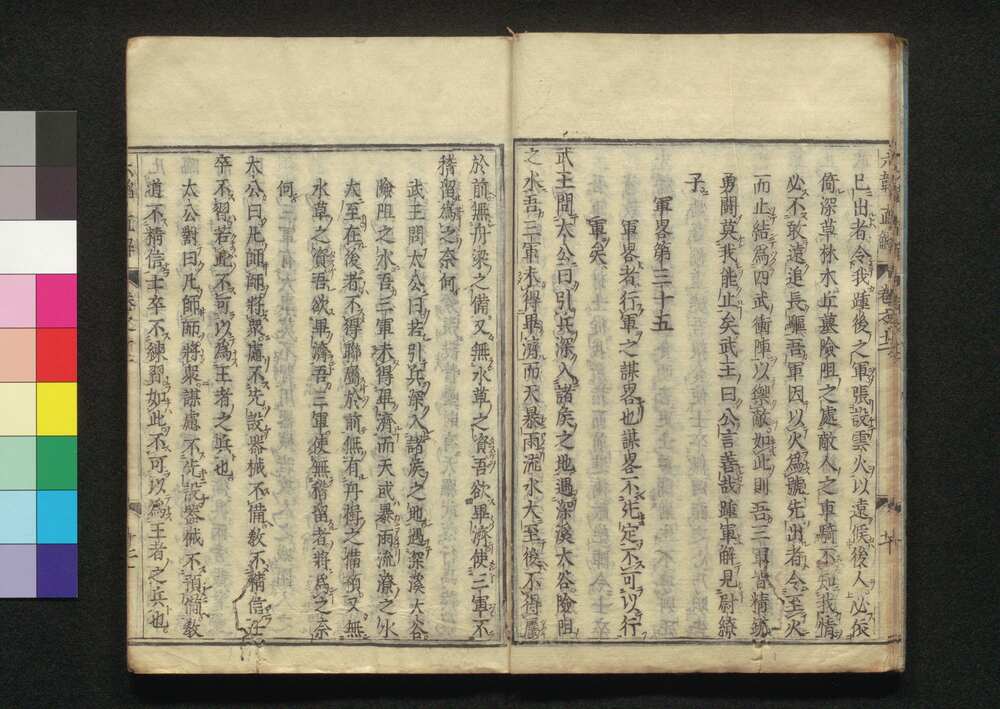 六韜直解 卷之五 六十
已出者令我踵後之軍張設雲火以遠候後人必依
倚深草林木丘墓險阻之處敵人之車騎不知我情
必不敢遠追長驅吾軍因以火為號先出者令至火
而止結為四武衝陣以禦敵如此則吾三軍皆精銳
勇鬪莫我能止矣武王曰公言善哉踵軍解見尉繚
子
軍畧第三十五
軍畧者行軍之謀畧也謀畧不先定不可以行
軍矣
武王問太公曰引兵深入諸矦之地遇深溪大谷險阻
之水吾三軍未得畢濟而天暴雨流水大至後不得屬
於前無舟梁之備又無水草之資吾欲畢濟使三軍不
稽留為之奈何
武王問太公曰若引兵深入諸矦之地遇深溪大谷
險阻之水吾三軍未得畢濟而天或暴雨流潦之水
大至在後者不得聯屬於前無有舟梁之備預又無
水草之資吾欲畢濟吾三軍使無稽留者將為之奈
何
太公曰凡帥師將衆慮不先設器械不備敎不精信士
卒不習若此不可以為王者之兵也
太公對曰凡師而將衆謀慮不先設器械不預備敎
道不精信士卒不練習如此不可以為王者之兵也